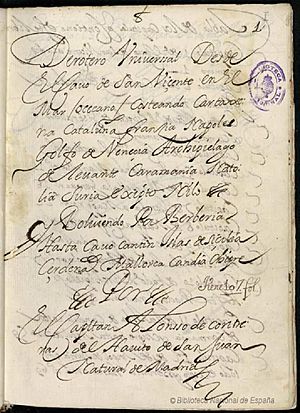 8
1
Derotero Univerſal Desde
El Cavo de San Vicente en El
Mar Occeano / Costeando Cartaxe
na Cataluña Franſia Napol
Golfo de Venecia Archipielago
de Levante Caramania Nato
lia Suria Exipto Nilo
y Bolviendo Por Berberia
Hasta Cavo Cantin Islas de Sicilia
Cerdena Mallorca Candia
tiene 107 fol
Por
El Capitan Alonso de contre
ras del Havito de San Juan
Natural de Madrid
© Biblioteca Nacional de España